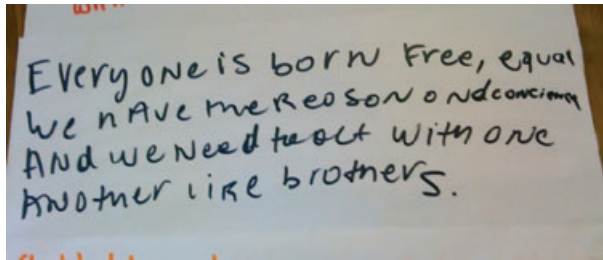 Everyone is born Free, equal
We have the Reoson ond conciency
And we Need to oct with one
Another like brothers.